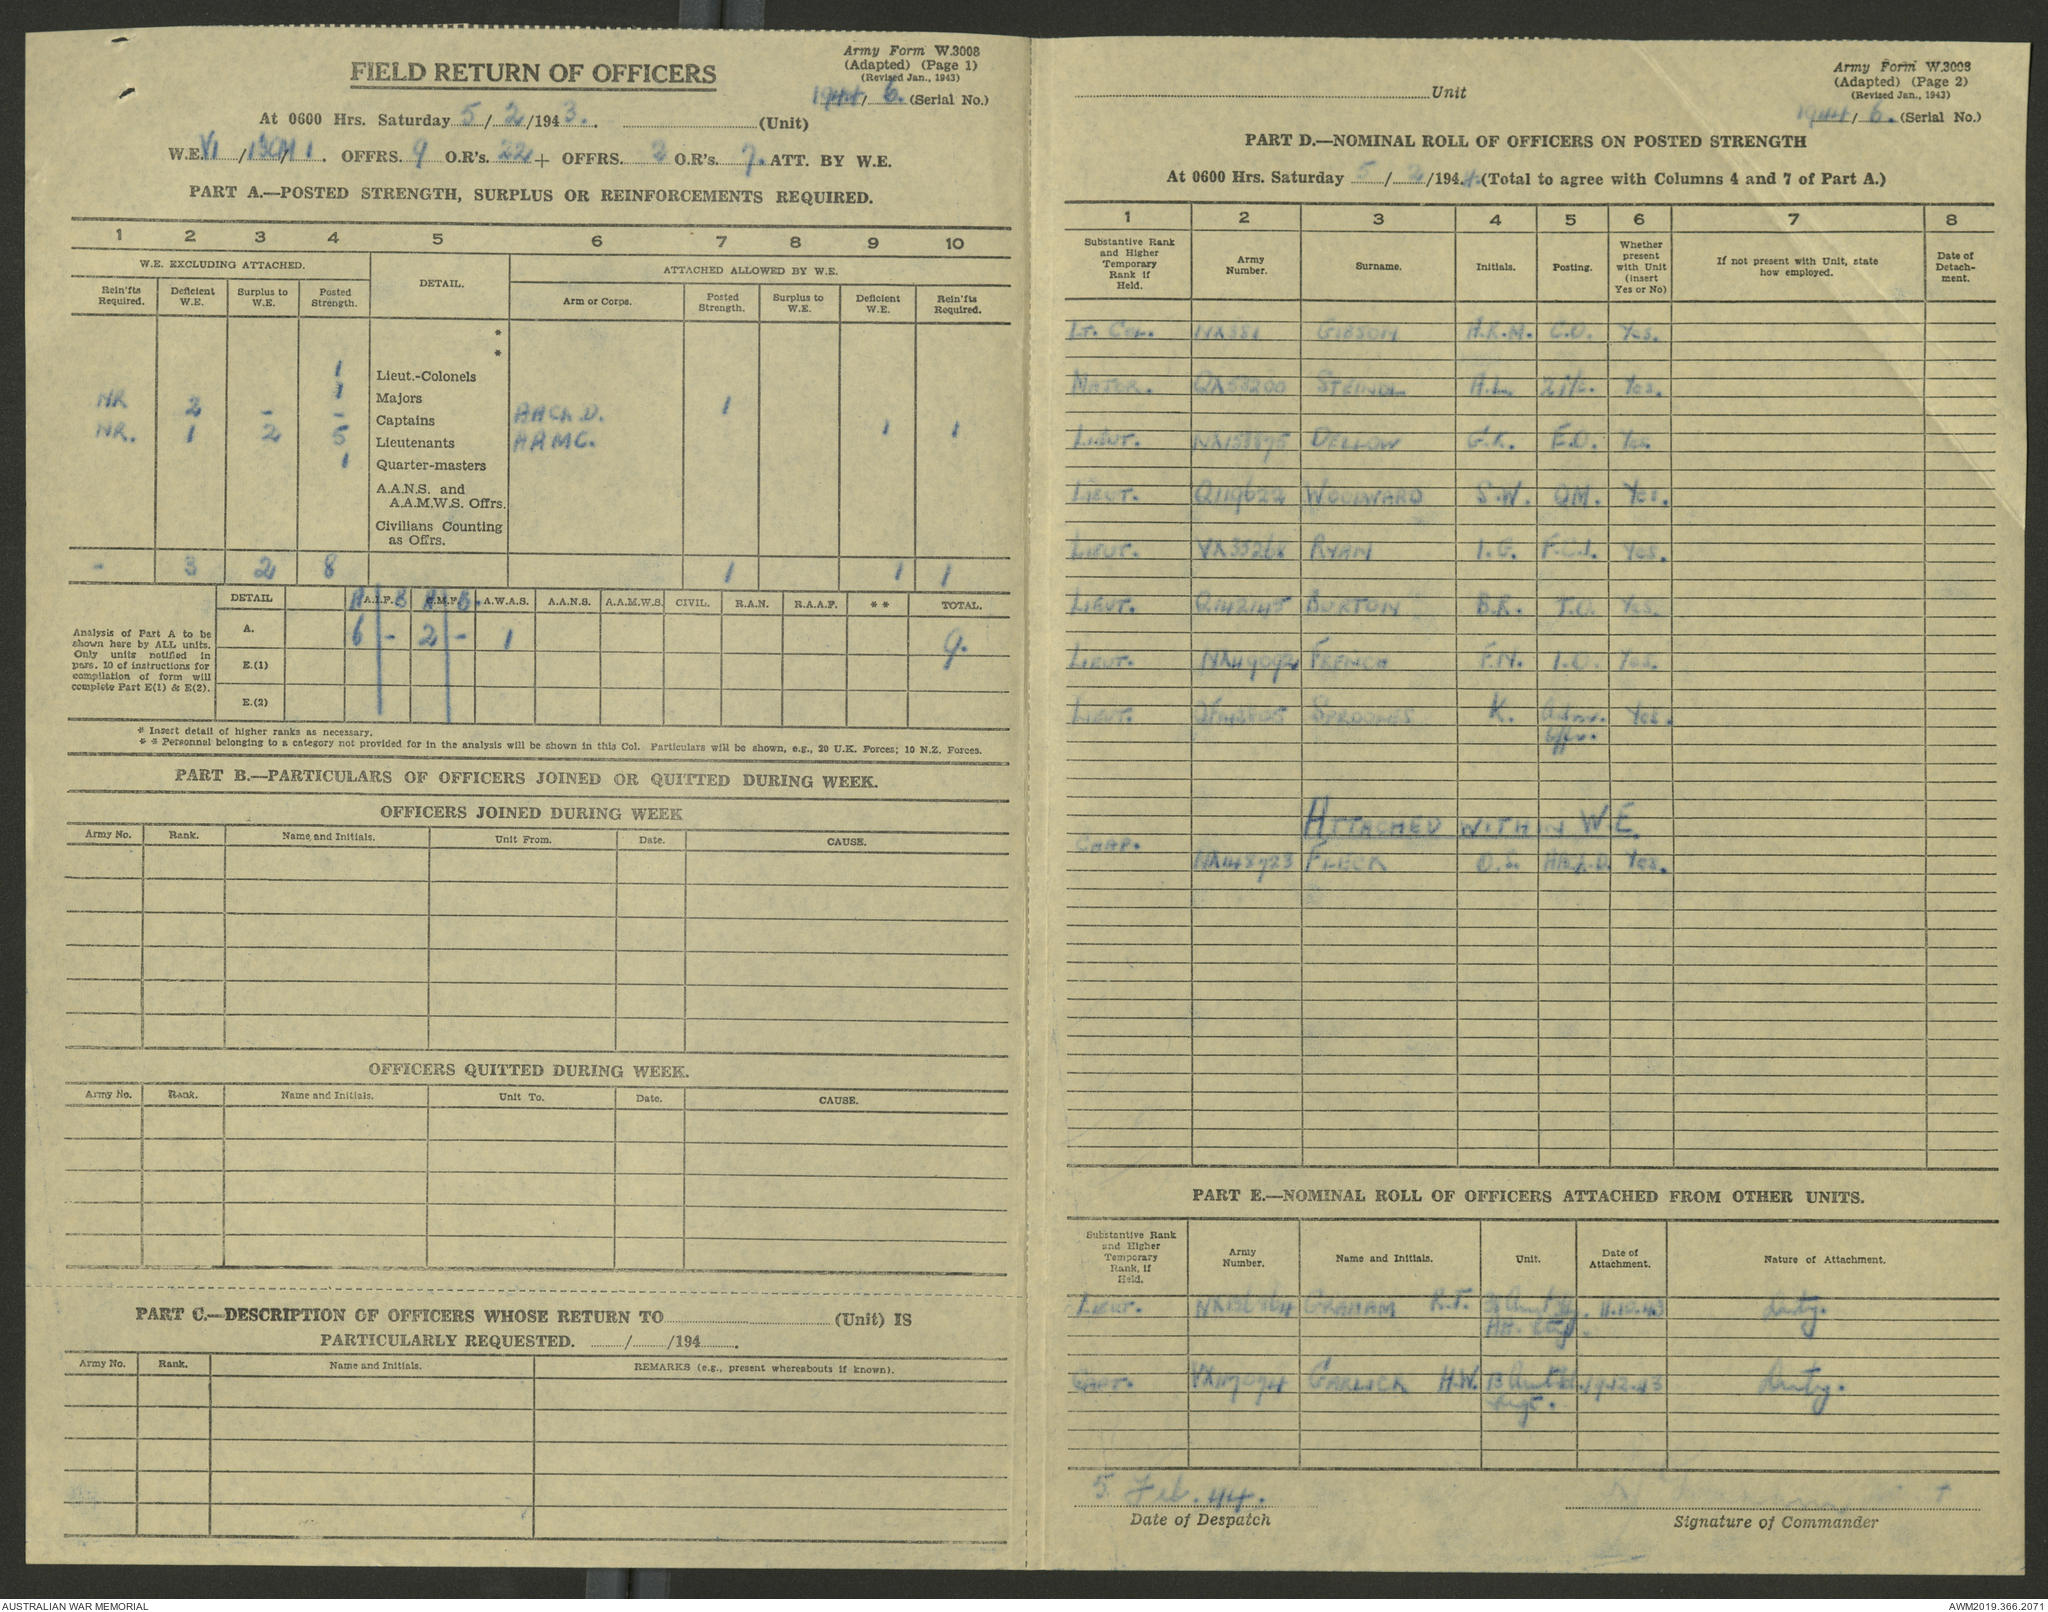 Army Form W.3008
(Adapted) (Page 1)
(Revised Jan., 1943)
FIELD RETURN OF OFFICERS
1944/6. (Serial No.)
At 0600 Hrs. Saturday 5/2/1943. (Unit)
W.E. VI/ OFFRS. 9 O.R's. 22 + OFFRS. 2 O.R's. 7. ATT. BY W.E.
PART A.—POSTED STRENGTH, SURPLUS OR REINFORCEMENTS REQUIRED.
1 2 3 4 5 6 7 8 9 10
W.E. EXCLUDING ATTACHED. DETAIL. ATTACHED ALLOWED BY W.E.
Rein'fts Required. Deficient W.E. Surplus to W.E. Posted Strength. Arm or Corps. Posted Strength. Surplus to W.E. Deficient W.E. Rein'fts Required.
*
*
1 Lieut.-Colonels
1 Majors
NR 2 - - Captains AACh.D. 1
NR. 1 2 5 Lieutenants AAMC. 1 1
1 Quarter-masters
A.A.N.S. and
A.A.M.W.S. Offrs.
Civilians Counting
as Offrs.
- 3 2 8 1 1 1
DETAIL A A.I.F. B A C.M.F. B. A.W.A.S. A.A.N.S. A.A.M.W.S. CIVIL. R.A.N. R.A.A.F. * * TOTAL.
Analysis of Part A to be shown here by ALL units. Only units notified in para. 10 of instructions for compilation of form will complete Part E(1) & E(2).
A. 6 - 2 - 1 9.
E.(1)
E.(2)
* Insert detail of higher ranks as necessary.
* * Personnel belonging to a category not provided for in the analysis will be shown in this Col. Particulars will be shown, e.g., 20 U.K. Forces; 10 N.Z. Forces.
PART B.—PARTICULARS OF OFFICERS JOINED OR QUITTED DURING WEEK.
OFFICERS JOINED DURING WEEK
Army No. Rank. Name and Initials. Unit From. Date. CAUSE.
OFFICERS QUITTED DURING WEEK.
Army No. Rank. Name and Initials. Unit To. Date. CAUSE.
PART C.—DESCRIPTION OF OFFICERS WHOSE RETURN TO (Unit) IS
PARTICULARLY REQUESTED. / /194 .
Army No. Rank. Name and Initials. REMARKS (e.g., present whereabouts if known).
Army Form W.3008
(Adapted) (Page 2)
(Revised Jan., 1943)
Unit
1944/6. (Serial No.)
PART D.—NOMINAL ROLL OF OFFICERS ON POSTED STRENGTH
At 0600 Hrs. Saturday 5/2/1944. (Total to agree with Columns 4 and 7 of Part A.)
1 2 3 4 5 6 7 8
Substantive Rank and Higher Temporary Rank if Held. Army Number. Surname. Initials. Posting. Whether present with Unit (insert Yes or No) If not present with Unit, state how employed. Date of Detachment.
Lt. Col. NX381 GIBSON H.K.M. C.O. Yes.
MAJOR. QX53200 STEINDL H.L. 2 i/c. Yes.
LIEUT. NX158875 DELLOW G.K. E.O. Yes
LIEUT. Q119622 WOOLWARD S.W. QM. Yes.
LIEUT. VX35268 RYAN I.G. F.C.I. Yes.
LIEUT. Q142145 BURTON B.R. T.O. Yes.
LIEUT. NX149092 FRENCH F.N. I.O. Yes.
LIEUT. K. Admn. Yes.
Offr.
ATTACHED WITHIN W.E.
CHAP. NX148723 FLECK O.S. AACh.D. Yes.
PART E.—NOMINAL ROLL OF OFFICERS ATTACHED FROM OTHER UNITS.
Substantive Rank and Higher Temporary Rank, if Held. Army Number. Name and Initials. Unit. Date of Attachment. Nature of Attachment.
LIEUT. GRAHAM R.T. 11.12.43 Duty.
CAPT. VX117074 GARLICK H.W. 19.12.43 Duty.
5 Feb. 44.
Date of Despatch
Signature of Commander
AUSTRALIAN WAR MEMORIAL
AWM2019.366.2071